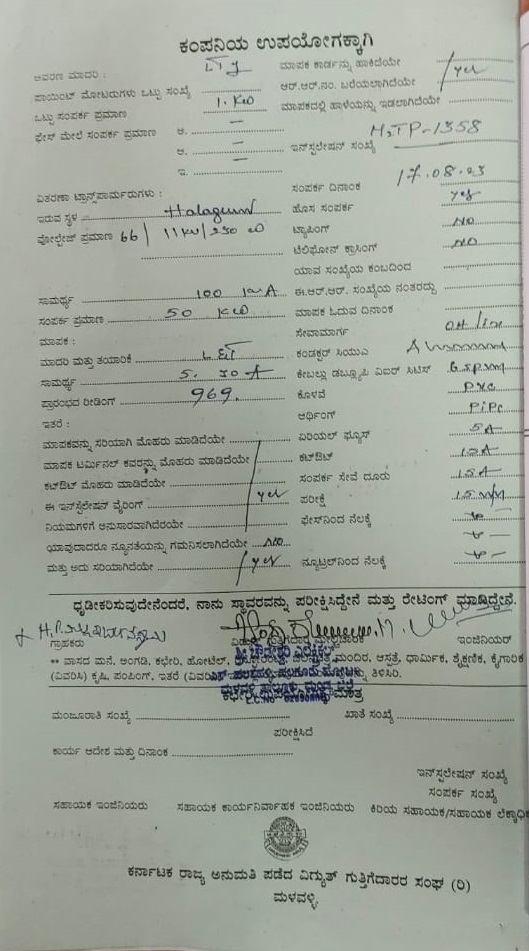 ಕಂಪನಿಯ ಉಪಯೋಗಕ್ಕಾಗಿ
ಆವರಣ ಮಾದರಿ :
ಮಾಪಕ ಕಾರ್ಡನ್ನು ಹಾಕಿದೆಯೇ
ಪಾಯಿಂಟ್ ಮೋಟರುಗಳು ಒಟ್ಟು ಸಂಖ್ಯೆ
ಆರ್.ಆರ್.ನಂ. ಬರೆಯಲಾಗಿದೆಯೇ yes
ಒಟ್ಟು ಸಂಪರ್ಕ ಪ್ರಮಾಣ 1. KW
ಮಾಪಕದಲ್ಲಿ ಹಾಳೆಯನ್ನು ಇಡಲಾಗಿದೆಯೇ
ಫೇಸ್ ಮೇಲೆ ಸಂಪರ್ಕ ಪ್ರಮಾಣ ಅ. —
ಆ. —
ಇನ್‌ಸ್ಟಲೇಷನ್ ಸಂಖ್ಯೆ HTP-1358
ಇ.
ವಿತರಣಾ ಟ್ರಾನ್ಸ್‌ಪಾರ್ಮರುಗಳು :
ಸಂಪರ್ಕ ದಿನಾಂಕ 17.08.23
ಇರುವ ಸ್ಥಳ Halagur
ಹೊಸ ಸಂಪರ್ಕ yes
ವೋಲ್ಟೇಜ್ ಪ್ರಮಾಣ 66/11KV/250
ಟ್ಯಾಪಿಂಗ್ NO
ಟೆಲಿಫೋನ್ ಕ್ರಾಸಿಂಗ್ NO
ಯಾವ ಸಂಖ್ಯೆಯ ಕಂಬದಿಂದ
ಸಾಮರ್ಥ್ಯ 100 KVA
ಈ.ಆರ್.ಆರ್. ಸಂಖ್ಯೆಯ ನಂತರದ್ದು
ಸಂಪರ್ಕ ಪ್ರಮಾಣ 50 KW
ಮಾಪಕ ಓದುವ ದಿನಾಂಕ
ಮಾಪಕ :
ಸೇವಾಮಾರ್ಗ OH/line
ಮಾದರಿ ಮತ್ತು ತಯಾರಿಕೆ L&T
ಕಂಡಕ್ಟರ್ ಸಿಯುಎ
ಸಾಮರ್ಥ್ಯ 5. 30 A
ಕೇಬಲ್ಲು ಡಬ್ಲ್ಯೂಪಿ ಏಐರ್ ಸಿಟಿಸ್
ಪ್ರಾರಂಭದ ರೀಡಿಂಗ್ 969.
ಕೊಳವೆ PVC
ಇತರೆ :
ಅರ್ಥಿಂಗ್ PiPe
ಮಾಪಕವನ್ನು ಸರಿಯಾಗಿ ಮೊಹರು ಮಾಡಿದೆಯೇ
ಏರಿಯಲ್ ಫ್ಯೂಸ್ 5A
ಮಾಪಕ ಟರ್ಮಿನಲ್ ಕವರನ್ನು ಮೊಹರು ಮಾಡಿದೆಯೇ
ಕಟ್‌ಔಟ್ 15A
ಕಟ್‌ಔಟ್ ಮೊಹರು ಮಾಡಿದೆಯೇ
ಸಂಪರ್ಕ ಸೇವೆ ದೂರು 15A
ಈ ಇನ್‌ಸ್ಟೆಲೇಷನ್ ವೈರಿಂಗ್ yes
ಪರೀಕ್ಷೆ
ನಿಯಮಗಳಿಗೆ ಅನುಸಾರವಾಗಿದೆರೆಯೇ
ಫೇಸ್‌ನಿಂದ ನೆಲಕ್ಕೆ
ಯಾವುದಾದರೂ ನ್ಯೂನತೆಯನ್ನು ಗಮನಿಸಲಾಗಿದೆಯೇ NO
ಮತ್ತು ಅದು ಸರಿಯಾಗಿದೆಯೇ yes
ನ್ಯೂಟ್ರಲ್‌ನಿಂದ ನೆಲಕ್ಕೆ
ಧೃಢೀಕರಿಸುವುದೇನೆಂದರೆ, ನಾನು ಸ್ಥಾವರವನ್ನು ಪರೀಕ್ಷಿಸಿದ್ದೇನೆ ಮತ್ತು ರೇಟಿಂಗ್ ಮಾಡಿದ್ದೇನೆ.
ಗ್ರಾಹಕರು ಇಂಜಿನಿಯರ್
** ವಾಸದ ಮನೆ, ಅಂಗಡಿ, ಕಛೇರಿ, ಹೋಟೆಲ್, ಮಂದಿರ, ಆಸ್ಪತ್ರೆ, ಧಾರ್ಮಿಕ, ಶೈಕ್ಷಣಿಕ, ಕೈಗಾರಿಕೆ
(ವಿವರಿಸಿ) ಕೃಷಿ, ಪಂಪಿಂಗ್, ಇತರೆ ತಿಳಿಸಿರಿ.
ಮಂಜೂರಾತಿ ಸಂಖ್ಯೆ ಖಾತೆ ಸಂಖ್ಯೆ
ಪರೀಕ್ಷಿಸಿದೆ
ಕಾರ್ಯ ಆದೇಶ ಮತ್ತು ದಿನಾಂಕ
ಇನ್‌ಸ್ಟಲೇಷನ್ ಸಂಖ್ಯೆ
ಸಂಪರ್ಕ ಸಂಖ್ಯೆ
ಸಹಾಯಕ ಇಂಜಿನಿಯರು ಸಹಾಯಕ ಕಾರ್ಯನಿರ್ವಾಹಕ ಇಂಜಿನಿಯರು ಕಿರಿಯ ಸಹಾಯಕ/ಸಹಾಯಕ ಲೆಕ್ಕಾಧಿಕ
ಕರ್ನಾಟಕ ರಾಜ್ಯ ಅನುಮತಿ ಪಡೆದ ವಿದ್ಯುತ್ ಗುತ್ತಿಗೆದಾರರ ಸಂಘ (ರಿ)
ಮಳವಳ್ಳಿ